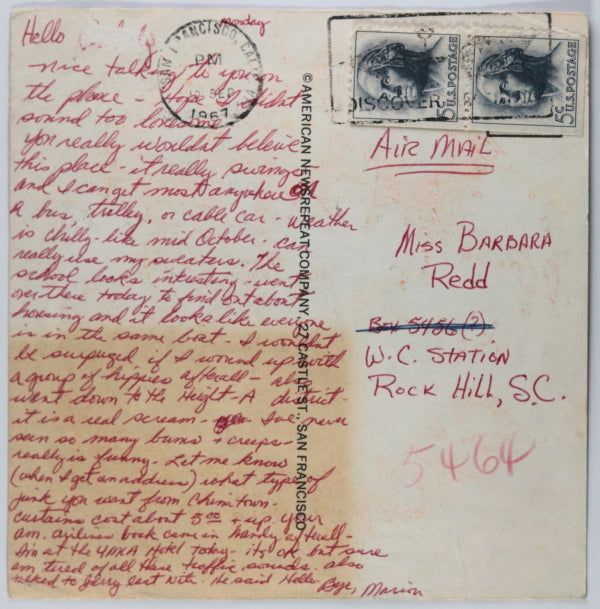 Monday
Hello
nice talking to you on
the phone - Hope I didn't
sound too lonesome
you really wouldn't believe
this place - it really swings
and I can get most anywhere on
a bus, trolley, or cable car - weather
is chilly - like mid October - can
really use my sweaters. The
school looks intresting - went
over there today to find out about
housing and it looks like everyone
is in the same boat - I wouldn't
be surprized if I wound up with
a group of hippies afterall - also
went down to the Height-A district -
it is a real scream - I've never
seen so many bums & creeps -
really is funny - Let me know
(when I get an address) what type of
junk you want from Chinatown -
curtains cost about 5.00 & up. your
am. airlines book came in handy afterall -
Am at the YMCA Hotel today - its ok, but sure
am tired of all these traffic sounds. also
talked to Jerry last nite. He said Hello
Bye, Marion
SAN FRANCISCO, CALIF.
PM
SEP
1967
DISCOVER
5c U.S. POSTAGE
5c U.S. POSTAGE
©AMERICAN NEWSREPEAT COMPANY, 27 CASTLE ST., SAN FRANCISCO
AIR MAIL
MISS BARBARA
REDD
Box 5456 (?)
W.C. STATION
ROCK HILL, S.C.
5464